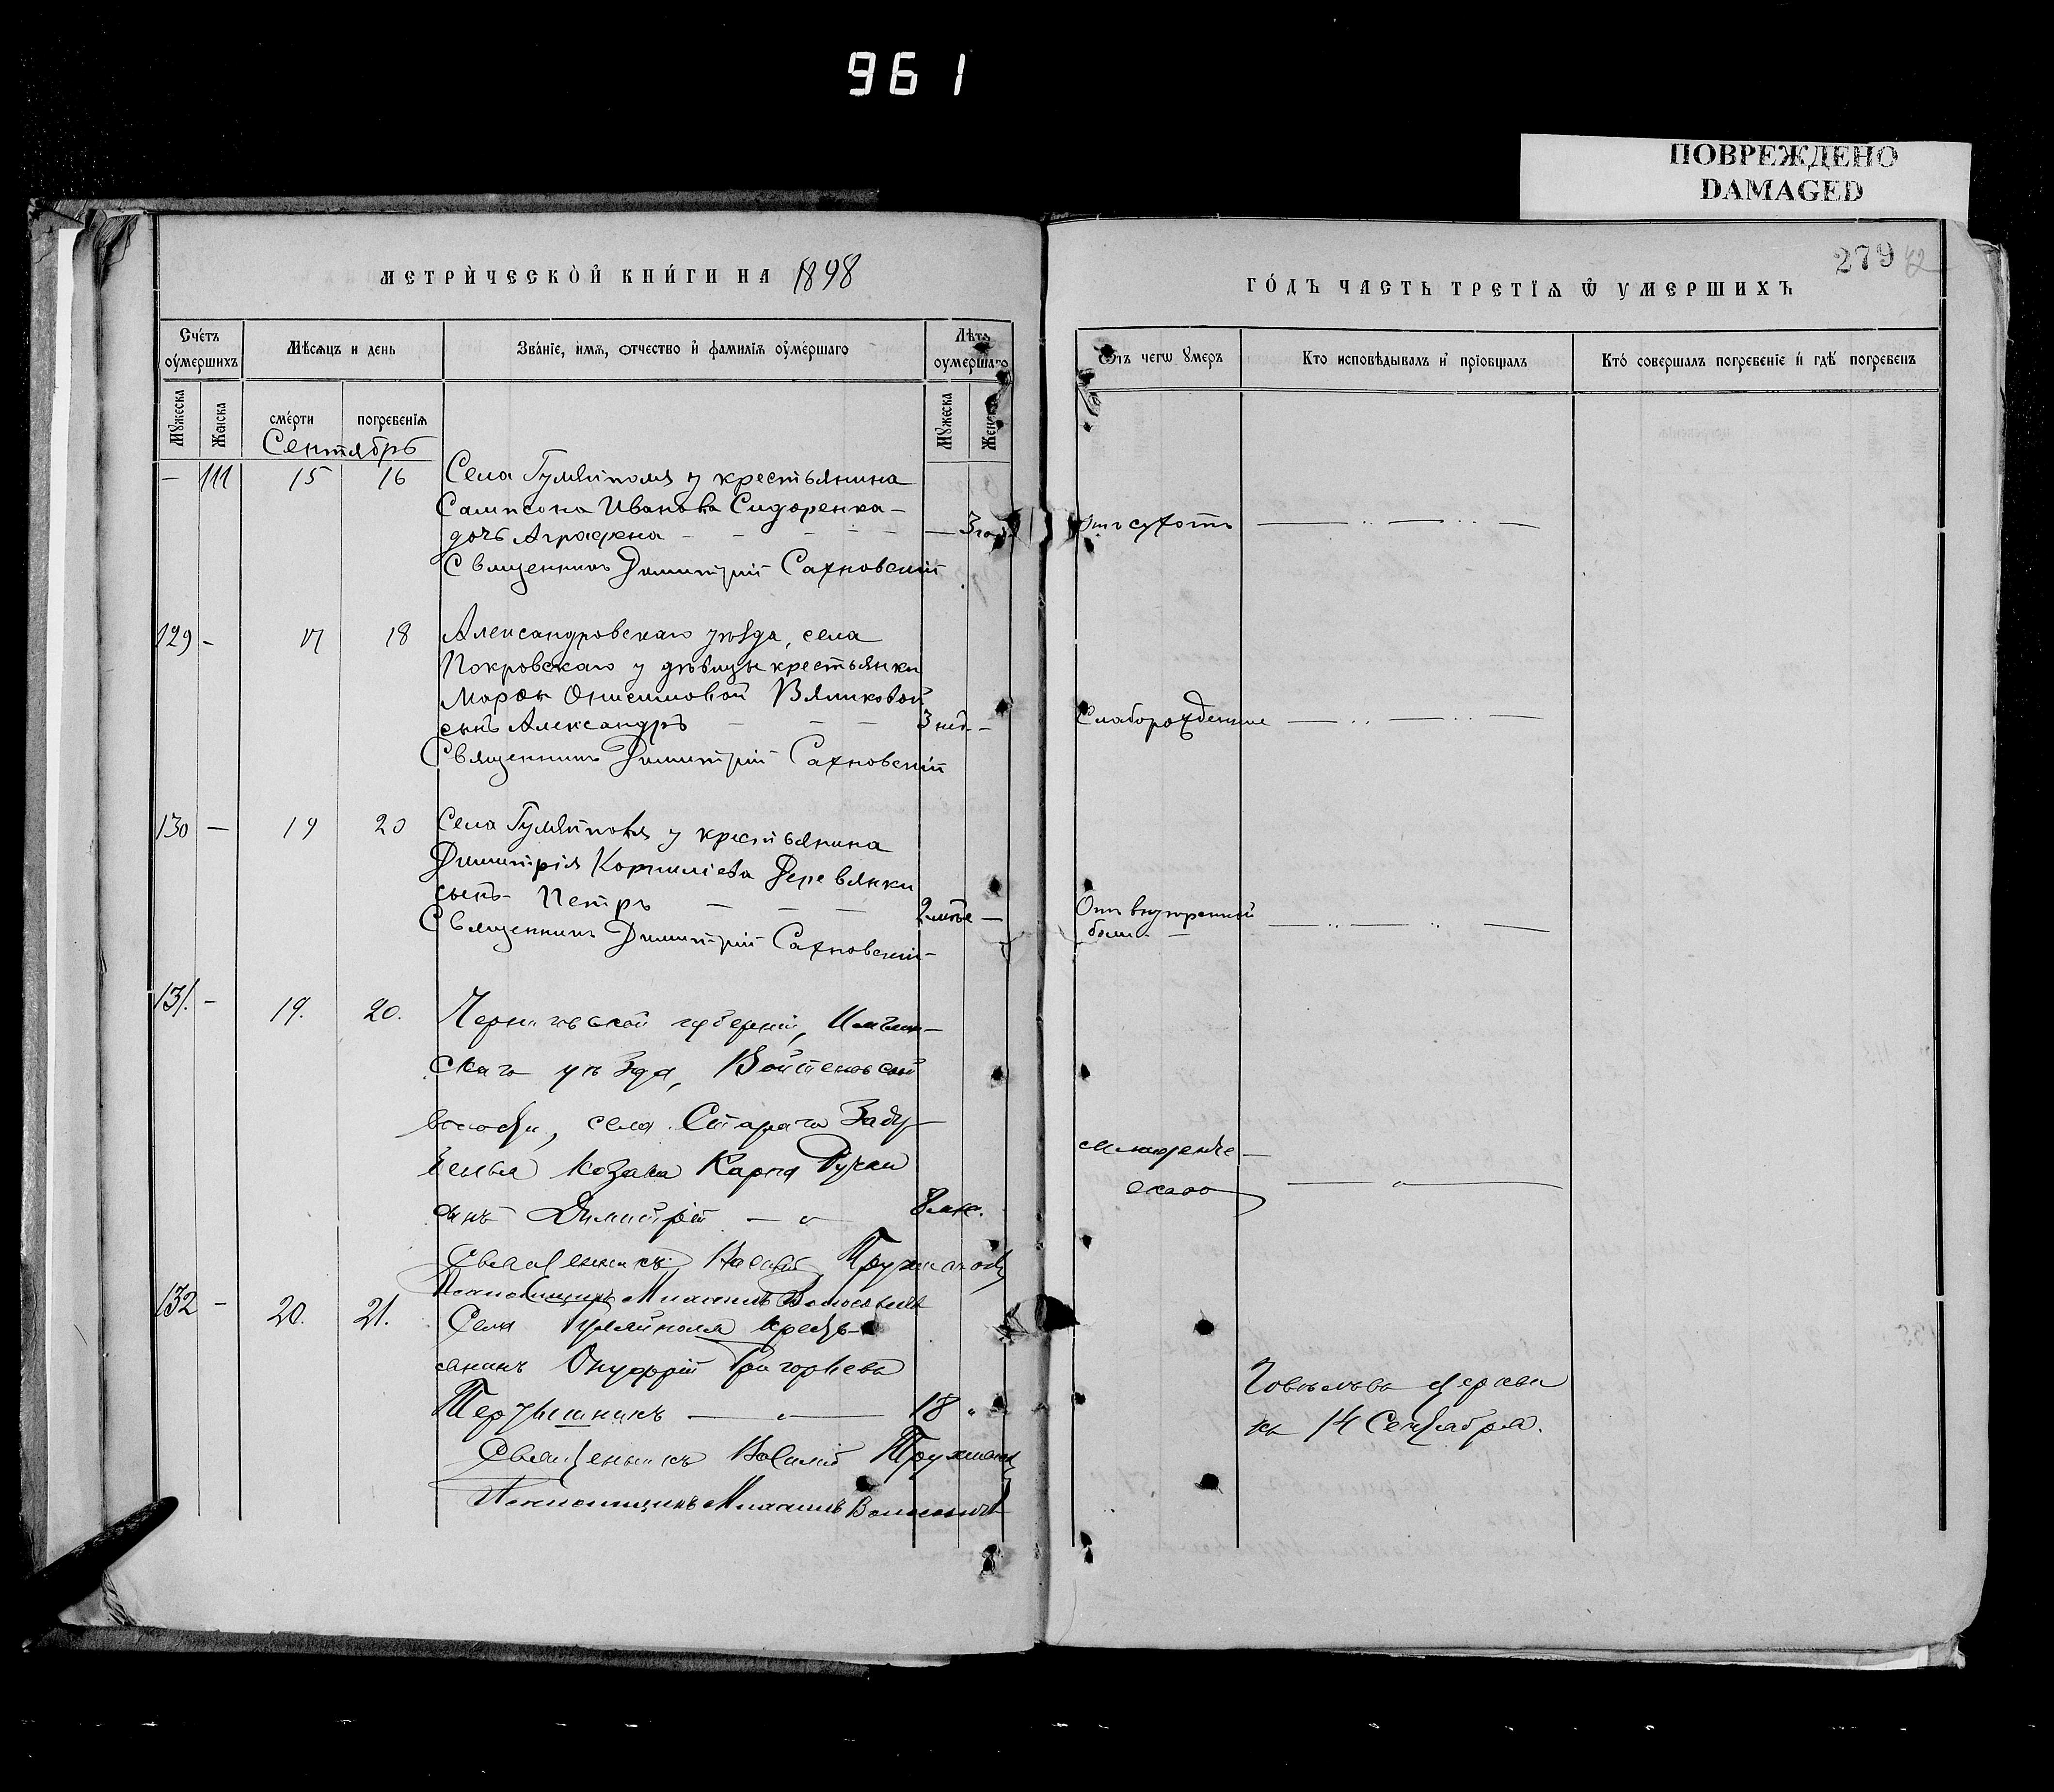 961
ПОВРЕЖДЕНО
DAMAGED
279 42
МЕТРИЧЕСКОЙ КНИГИ НА 1898
ГОДЪ ЧАСТЬ ТРЕТІѦ Ѿ УМЕРШИХЪ
Счетъ оумершихъ
Мѣсяцъ и день
Званіе, имѧ, отчество и фамиліѧ оумершаго
Лѣта оумершаго
Отъ чегѡ умеръ
Кто исповѣдывалъ и пріобщалъ
Кто совершалъ погребеніе и гдѣ погребенъ
Мужеска
Женска
смерти
погребеніѧ
Мужеска
Женска
Сентябрь
— 111 15 16 Села Гуляйполя у крестьянина
Сампсона Иванова Сидоренка —
дочь Агрофена — — 3 год. Отъ сухотъ — „ — „ —
Священникъ Димитрій Сахновскій
129 — 17 18 Александровскаго уѣзда, села
Покровскаго у дѣвицы крестьянки
Марѳы Онисимовой
сынъ Александръ — — — 3 нед. — Слаборожденіе — „ — „ —
Священникъ Димитрій Сахновскій
130 — 19 20 Села Гуляйполя у крестьянина
Димитрія Корниліева Деревянки
сынъ Петръ — — — 2 мѣс — Отъ внутренней
боли — — „ — „ —
Священникъ Димитрій Сахновскій
131. — 19. 20. Черниговской губерніи,
скаго уѣзда,
волости, села Стараго
козака Карпа
сынъ Димитрій — „ — 8 мѣс.
младенче-
скаго — „ —
Священникъ Василій
Псаломщикъ Михаилъ
132 — 20. 21. Села Гуляйполя крест-
янинъ Онуфрій Григорьевъ
— „ — 18 „
церкви
14 Сентября.
Священникъ Василій
Псаломщикъ Михаилъ